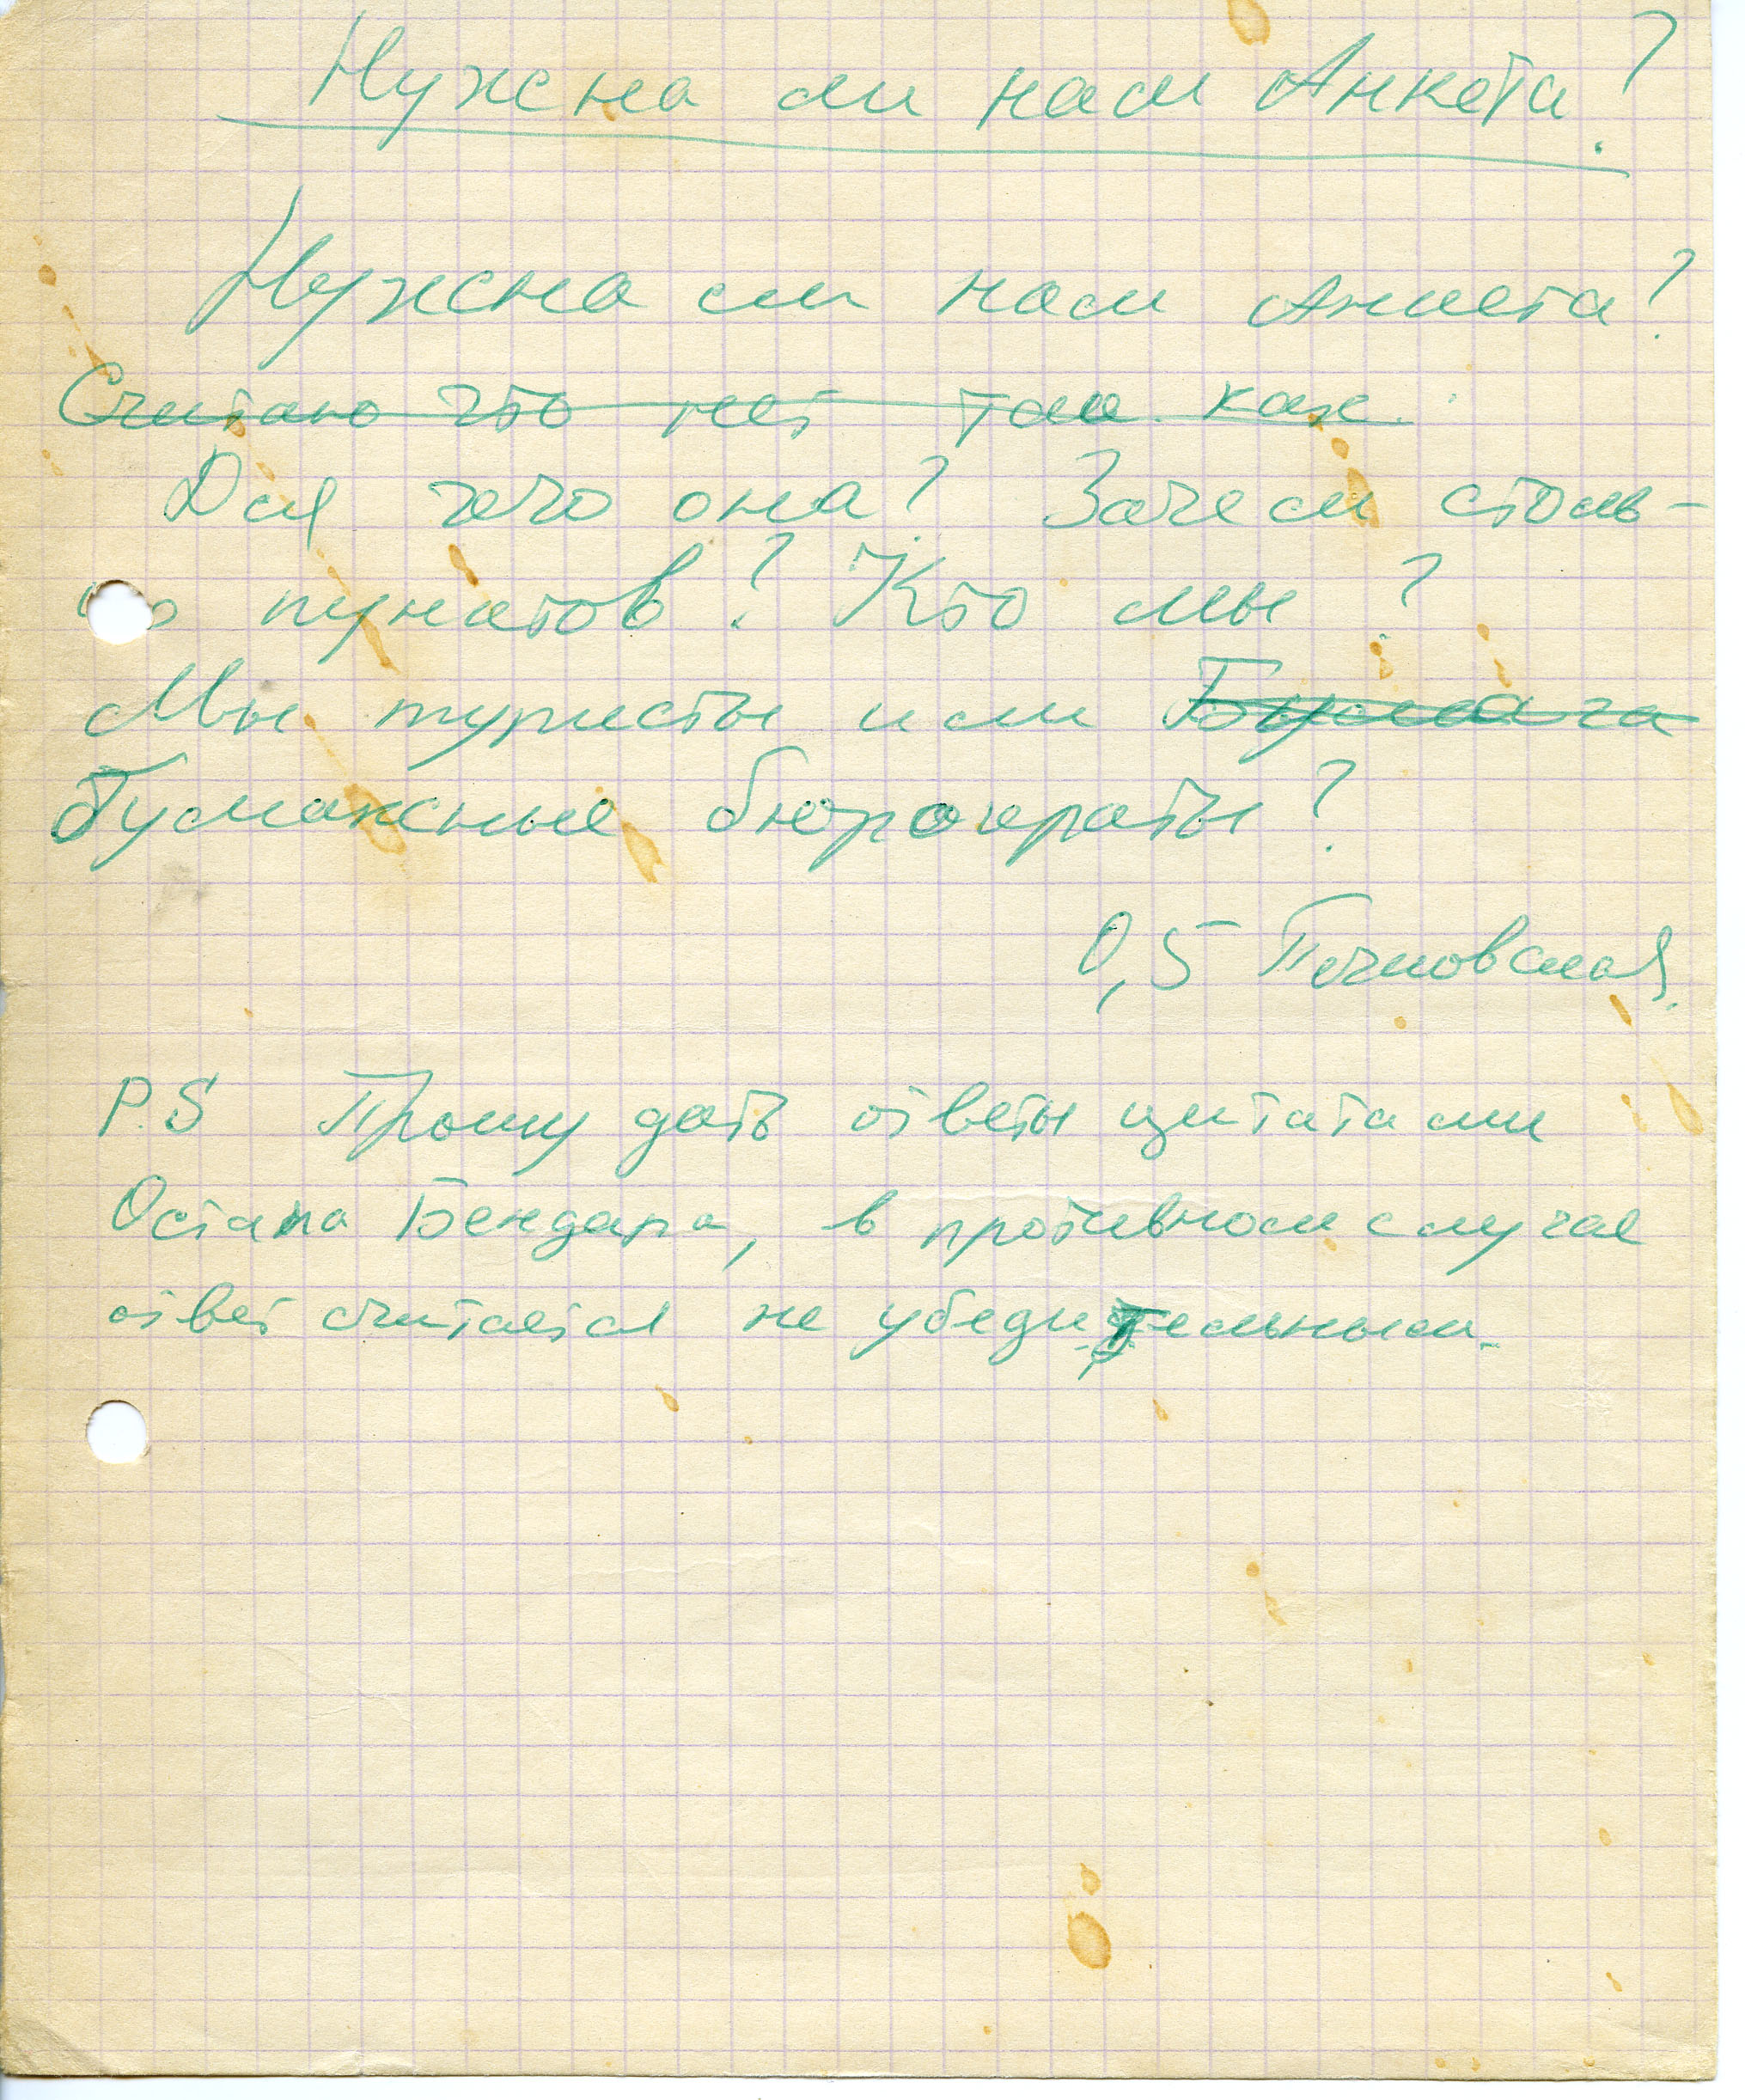 Нужна ли нам Анкета?
Нужна ли нам Анкета?
Считаю что нет так как
Для чего она? Зачем столь-
ко пунктов? Кто мы?
Мы туристы или Бумага
Бумажные бюрократы?
0,5 Печковская.
P.S Прошу дать ответы цитатами
Остапа Бендара, в противном случае
ответ считается не убедительным.